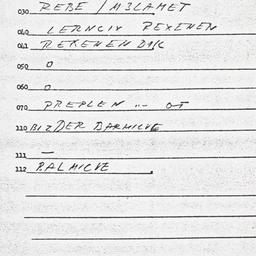 030 REBE / M3LAMET
040 LERNCIV PEXENEN
041 REKENEN D1/C
050 O
060 O
070 PREPLEN -- OT
110 BIZDER DARMICVE
111 —
112 PALMICVE.